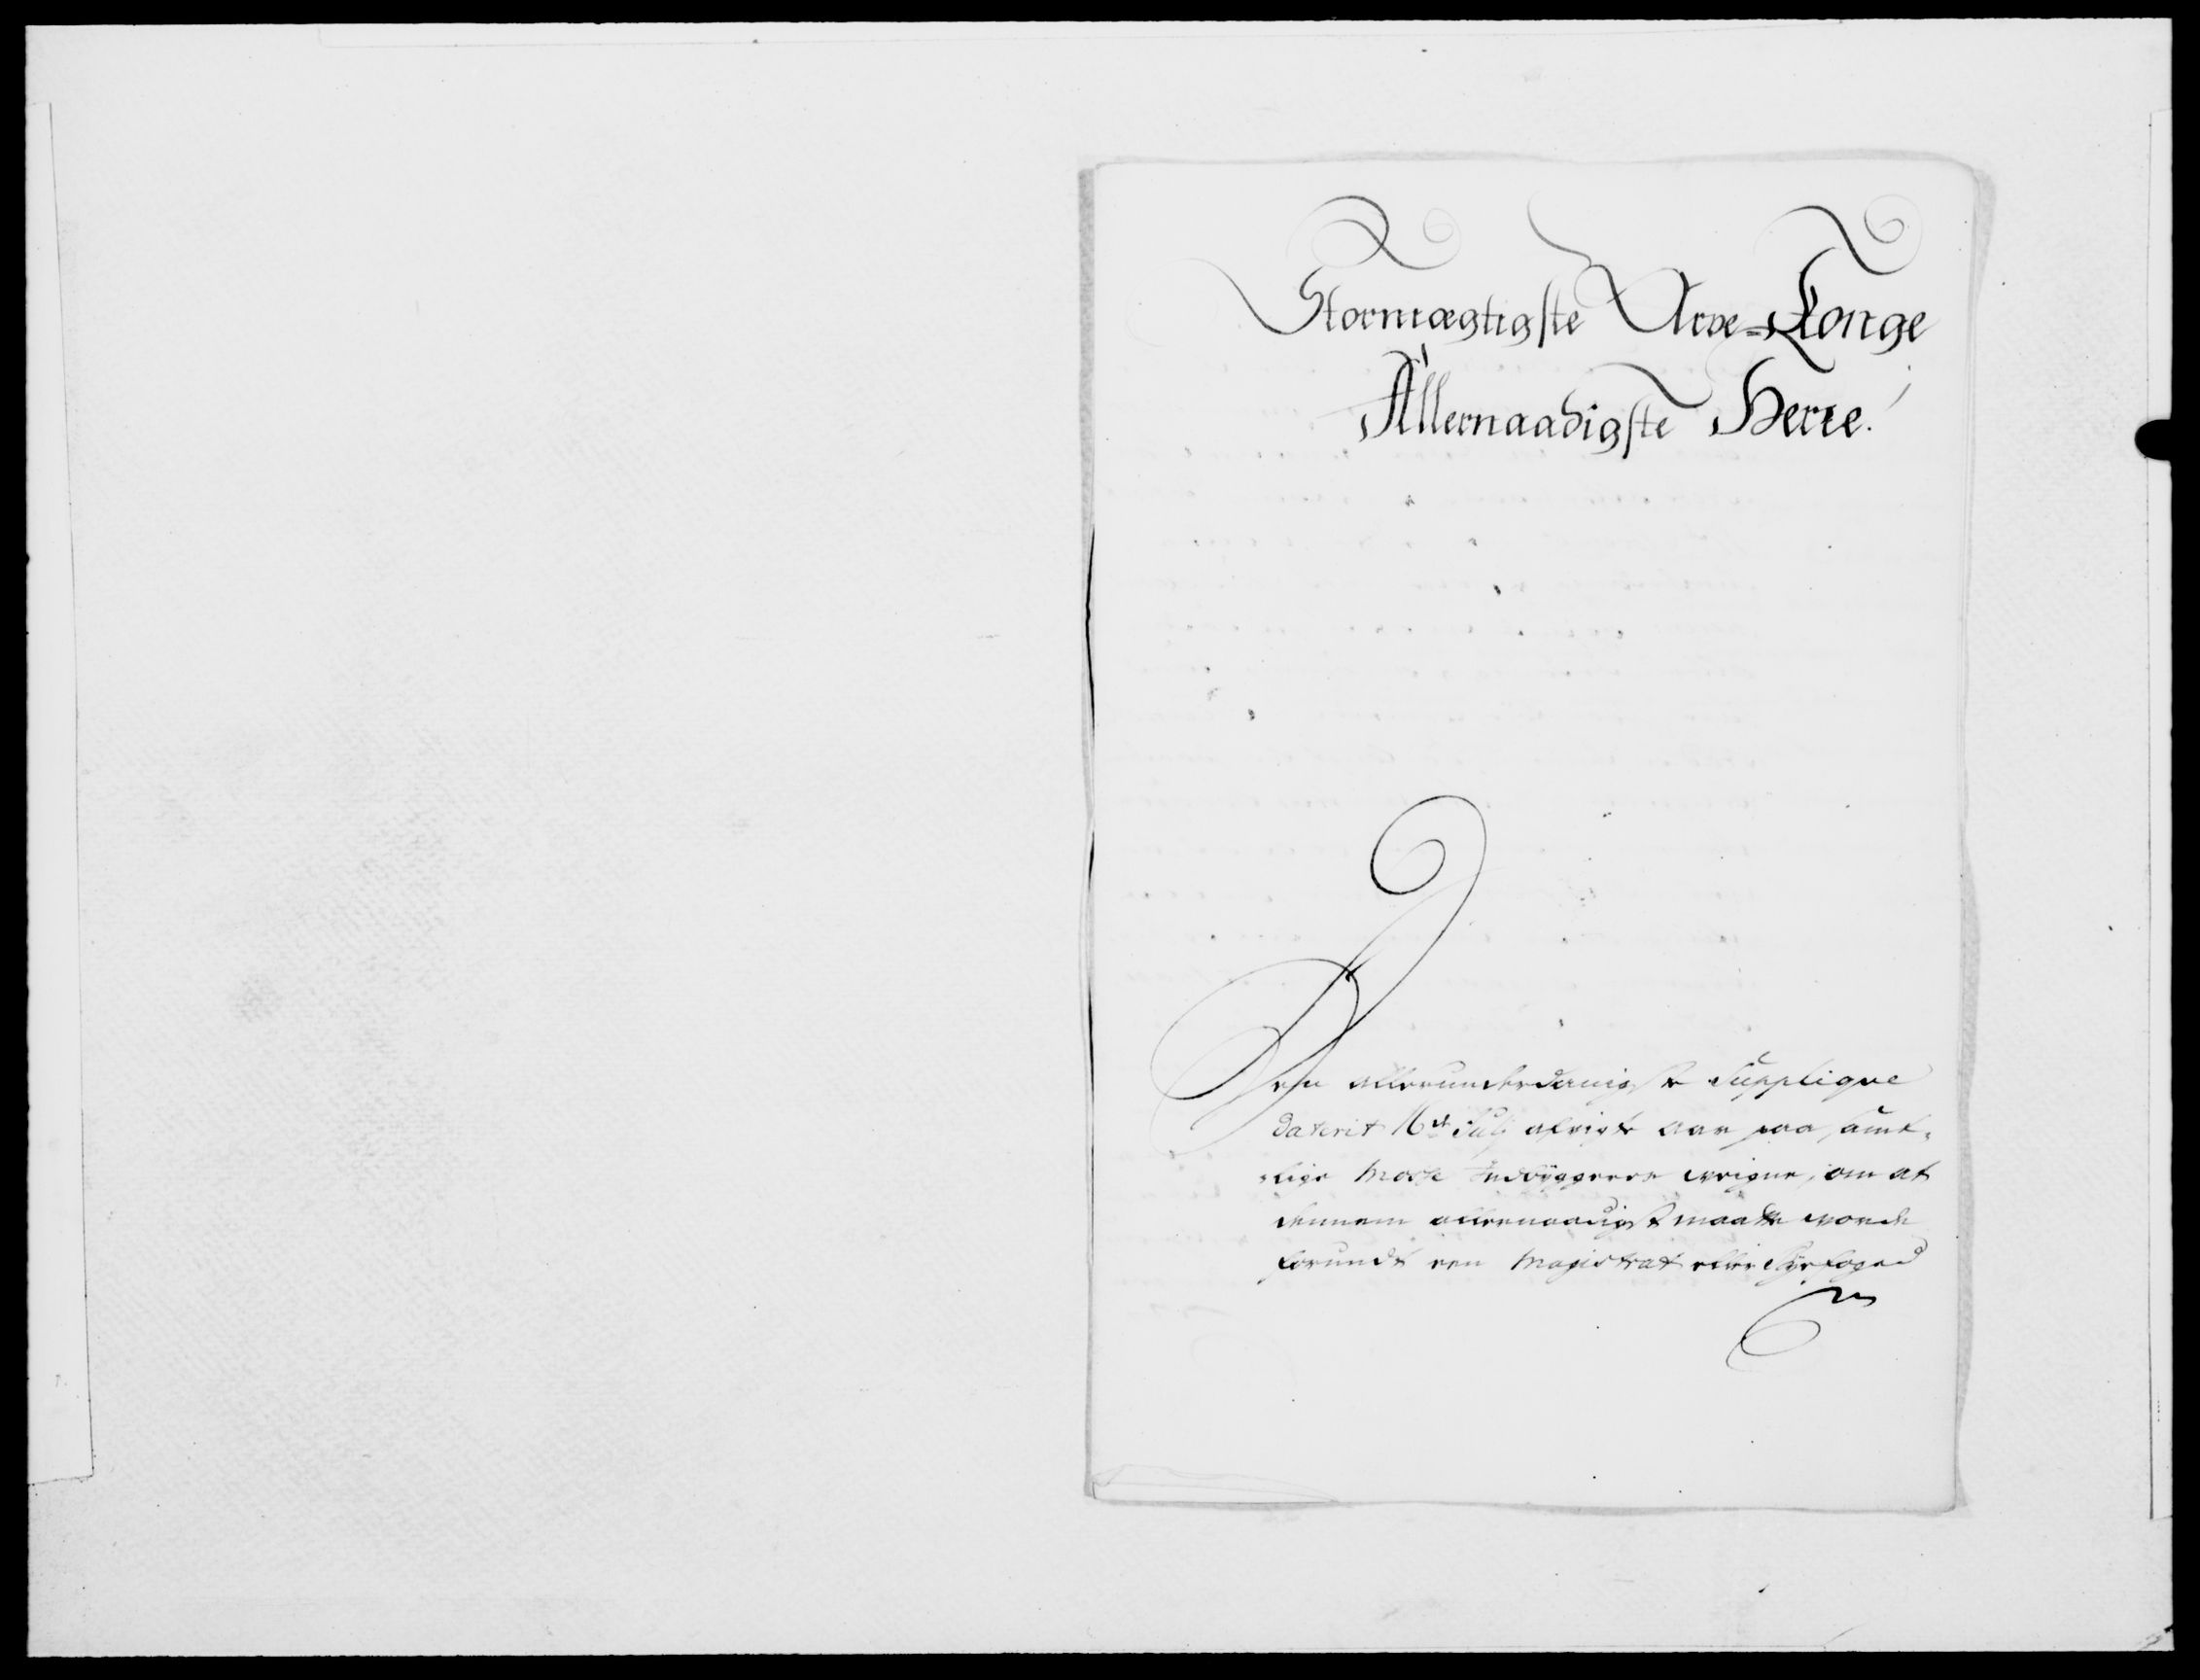 Stormægtigste Arve-Konge
Allernaadigste Herre!
Den allerunderdanigste Supplique
daterit 16de Julj afvigte aar paa samt-
lige Moss Indbyggeres veigne, om at
dennem allernaadigst maatte worde
forundt een Magistrat eller Byefoged